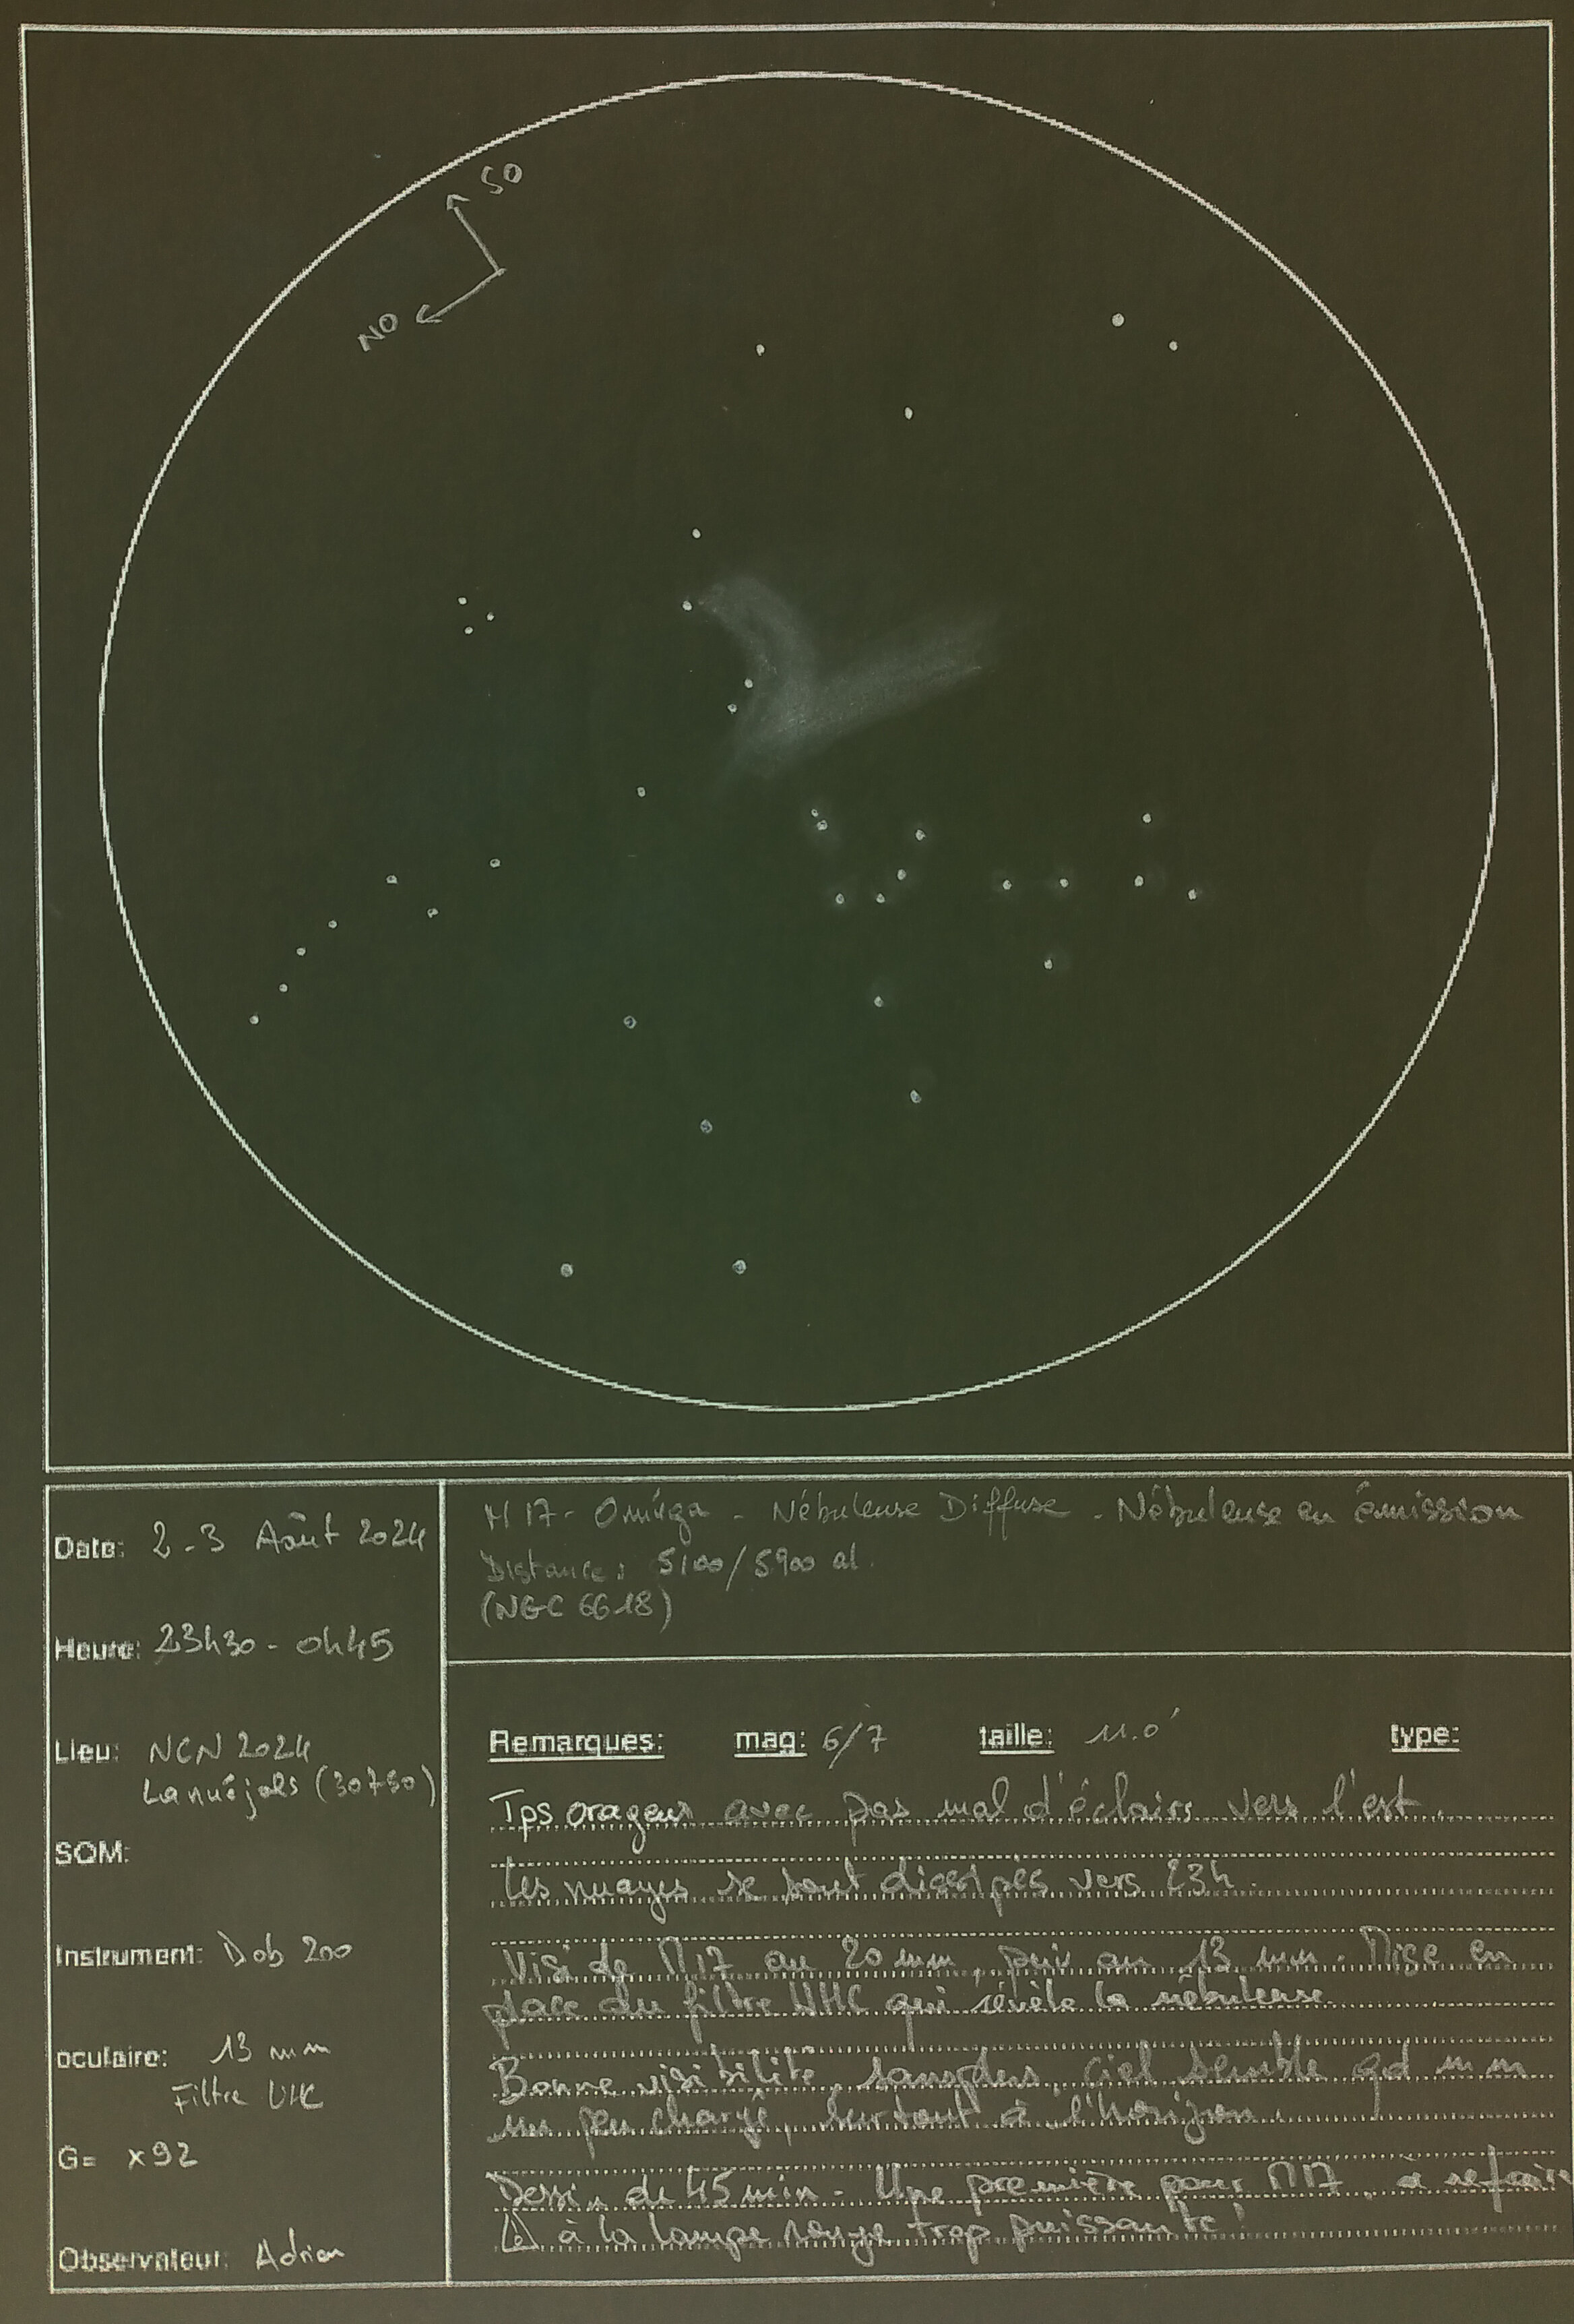 SO
NO
Date: 2-3 Août 2024
Heure: 23h30 - 0h45
Lieu: NCN 2024
Lanuéjols (30750)
SQM:
Instrument: Dob 200
oculaire: 13 mm
Filtre UHC
G= x92
Observateur: Adrien
M17 - Oméga - Nébuleuse Diffuse - Nébuleuse en émission
Distance: 5100/5900 al.
(NGC 6618)
Remarques: mag: 6/7 taille: 11.0' type:
Tps orageux avec pas mal d'éclairs vers l'est.
Les nuages se sont dissipés vers 23h.
Visi de M17 au 20 mm, puis au 13 mm. Mise en
place du filtre UHC qui révèle la nébuleuse
Bonne visibilité, sans plus, ciel semble qd mm
un peu chargé, surtout à l'horizon.
Dessin de 45 min - Une première pour M17, à refaire
à la lampe rouge trop puissante!